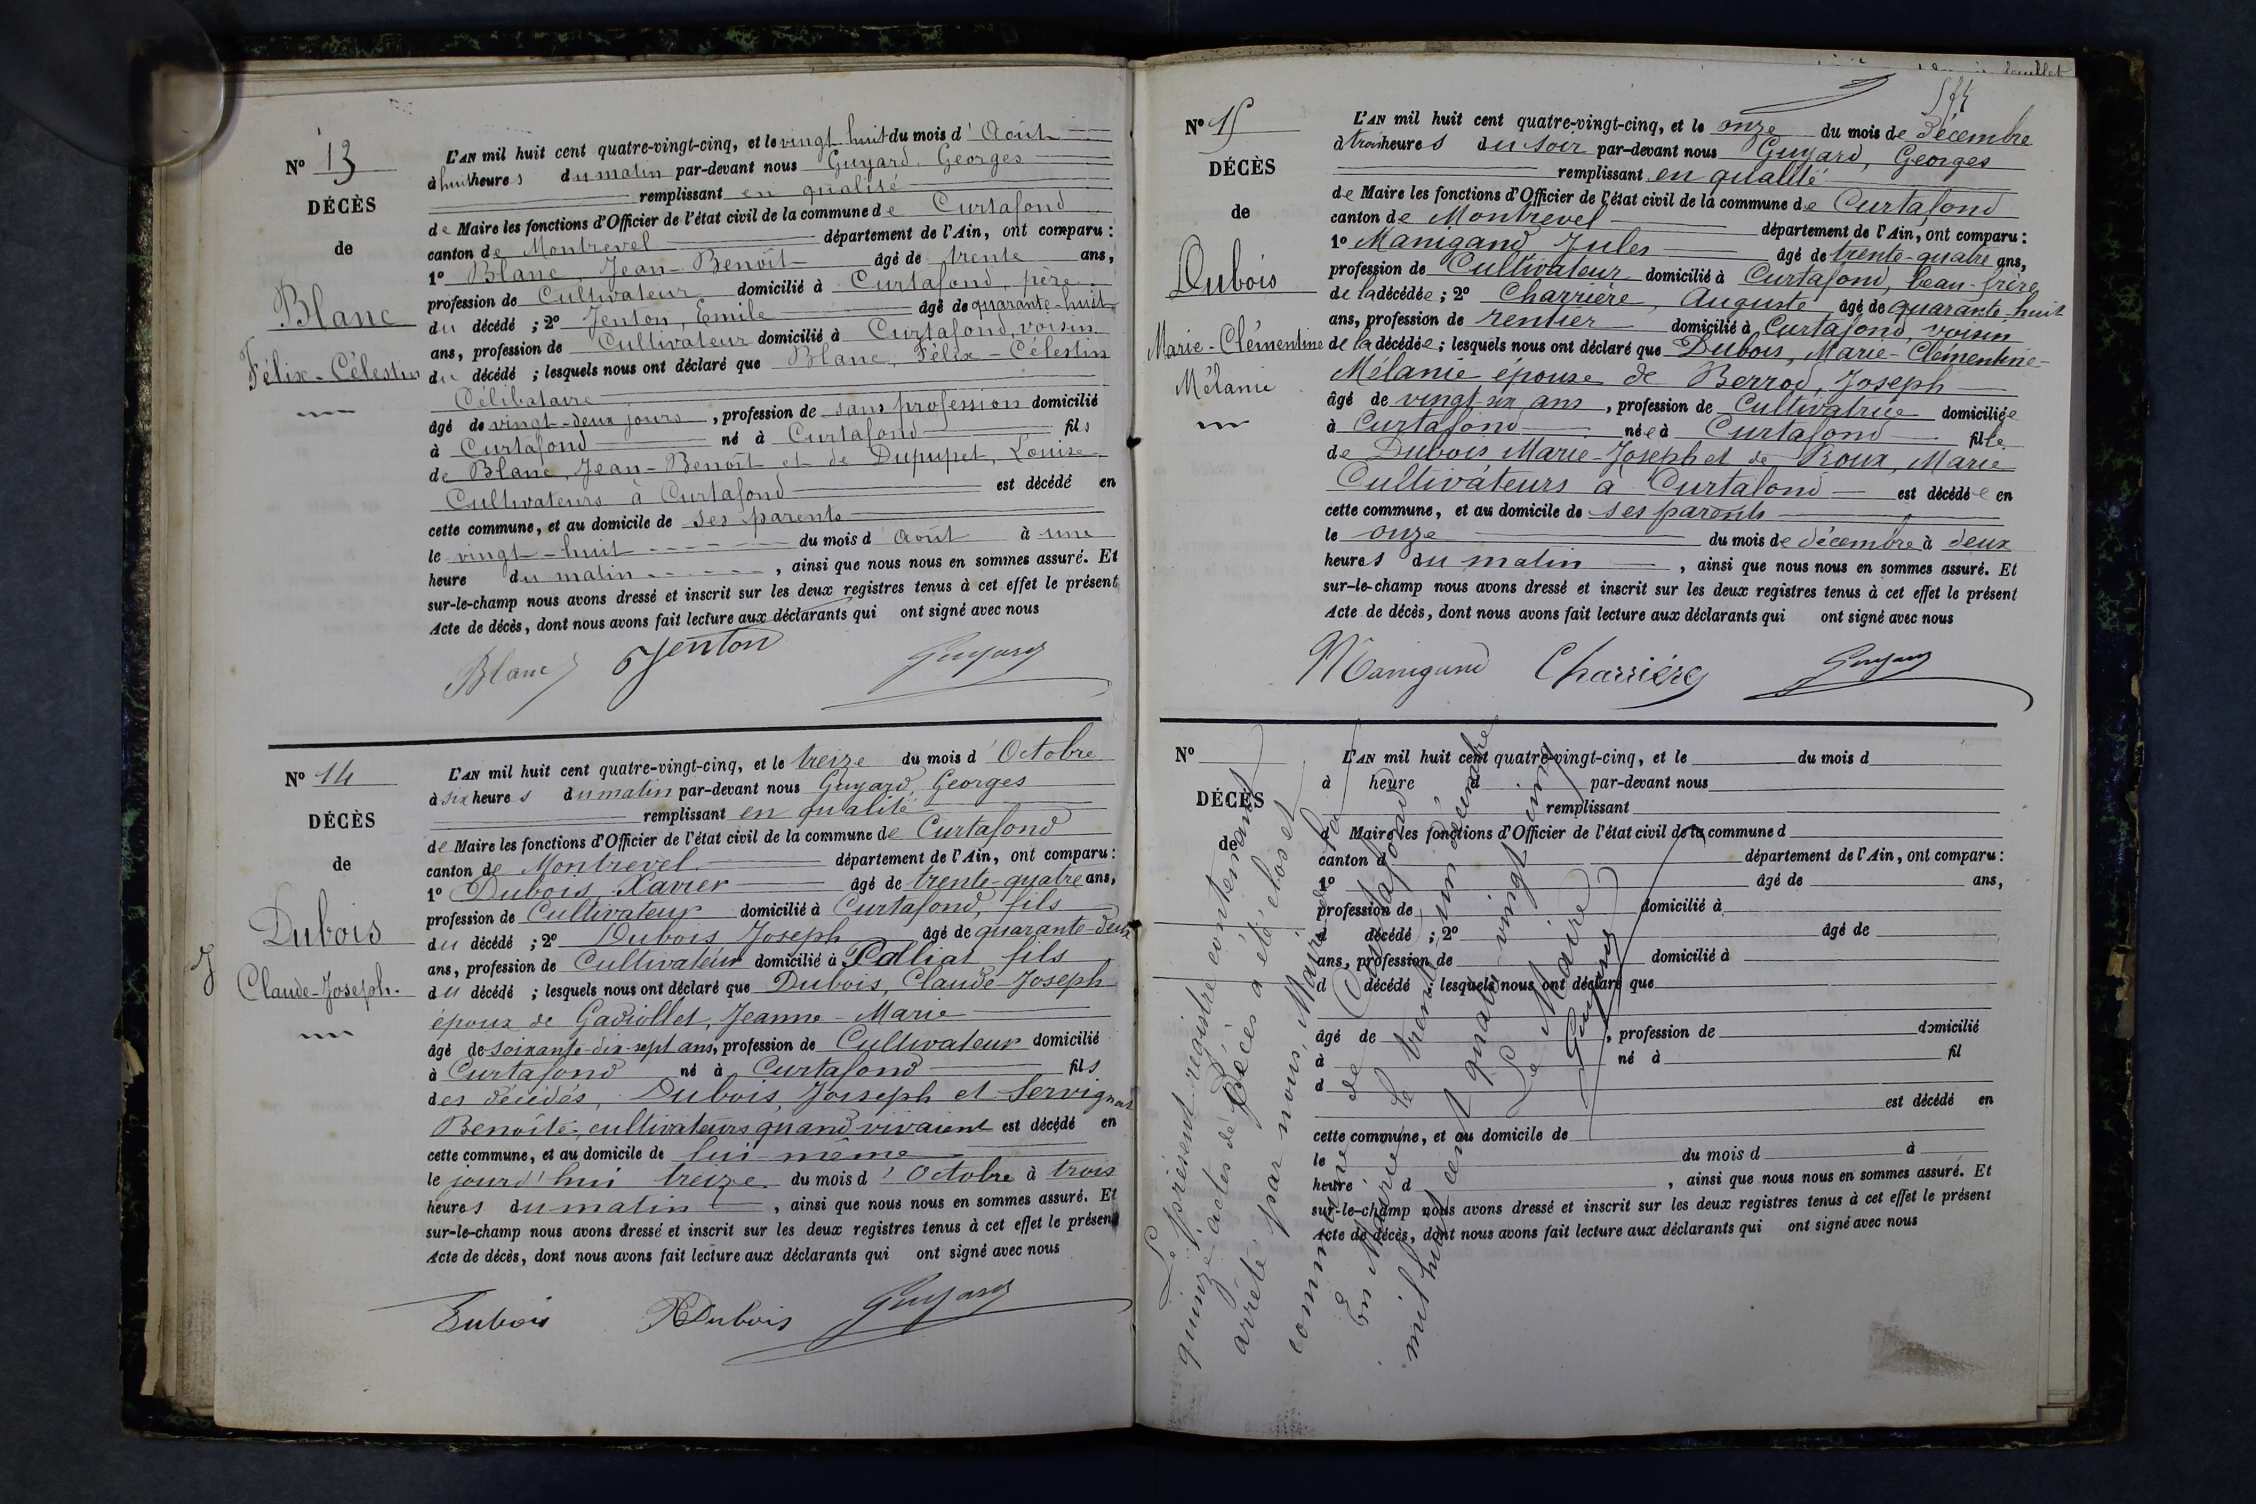 N° 13
DÉCÈS
de
Blanc
Félix-Célestin
L'AN mil huit cent quatre-vingt-cinq, et le vingt huit du mois d'Août
à huit heures du matin par-devant nous Guyard, Georges
remplissant en qualité
de Maire les fonctions d'Officier de l'état civil de la commune de Curtafond
canton de Montrevel département de l'Ain, ont comparu :
1° Blanc, Jean-Benoît âgé de trente ans,
profession de Cultivateur domicilié à Curtafond, père
du décédé ; 2° Jenton, Emile âgé de quarante-huit
ans, profession de Cultivateur domicilié à Curtafond, voisin
du décédé ; lesquels nous ont déclaré que Blanc, Félix-Célestin
Célibataire
âgé de vingt-deux jours, profession de sans profession domicilié
à Curtafond né à Curtafond fils
de Blanc, Jean-Benoît et de Dupupet, Louise
Cultivateurs à Curtafond est décédé en
cette commune, et au domicile de ses parents
le vingt-huit du mois d Août à une
heure du matin, ainsi que nous nous en sommes assuré. Et
sur-le-champ nous avons dressé et inscrit sur les deux registres tenus à cet effet le présent
Acte de décès, dont nous avons fait lecture aux déclarants qui ont signé avec nous
Blanc Jenton Guyard
N° 14
DÉCÈS
de
Dubois
Claude-Joseph
L'AN mil huit cent quatre-vingt-cinq, et le treize du mois d'Octobre
à six heures du matin par-devant nous Guyard, Georges
remplissant en qualité
de Maire les fonctions d'Officier de l'état civil de la commune de Curtafond
canton de Montrevel département de l'Ain, ont comparu :
1° Dubois Xavier âgé de trente-quatre ans,
profession de Cultivateur domicilié à Curtafond, fils
du décédé ; 2° Dubois Joseph âgé de quarante-deux
ans, profession de Cultivateur domicilié à Polliat fils
du décédé ; lesquels nous ont déclaré que Dubois, Claude-Joseph
époux de Gadiollet, Jeanne-Marie
âgé de soixante-dix-sept ans, profession de Cultivateur domicilié
à Curtafond né à Curtafond fils
des décédés, Dubois, Joseph et Servignat
Benoîte, cultivateurs quand vivaient est décédé en
cette commune, et au domicile de lui-même
le jourd'hui treize du mois d'Octobre à trois
heures du matin, ainsi que nous nous en sommes assuré. Et
sur-le-champ nous avons dressé et inscrit sur les deux registres tenus à cet effet le présent
Acte de décès, dont nous avons fait lecture aux déclarants qui ont signé avec nous
Dubois X Dubois Guyard
N° 15
DÉCÈS
de
Dubois
Marie-Clémentine
Mélanie
L'AN mil huit cent quatre-vingt-cinq, et le onze du mois de Décembre
à trois heures du soir par-devant nous Guyard, Georges
remplissant en qualité
de Maire les fonctions d'Officier de l'état civil de la commune de Curtafond
canton de Montrevel département de l'Ain, ont comparu :
1° Manigand Jules âgé de trente-quatre ans,
profession de Cultivateur domicilié à Curtafond, beau-frère
de la décédée ; 2° Charrière, Auguste âgé de quarante-huit
ans, profession de rentier domicilié à Curtafond, voisin
de la décédée ; lesquels nous ont déclaré que Dubois, Marie-Clémentine-
Mélanie épouse de Berrod, Joseph
âgé de vingt six ans, profession de Cultivatrice domiciliée
à Curtafond née à Curtafond fille
de Dubois Marie-Joseph et de Proux, Marie
Cultivateurs à Curtafond est décédée en
cette commune, et au domicile de ses parents
le onze du mois de décembre à deux
heures du matin, ainsi que nous nous en sommes assuré. Et
sur-le-champ nous avons dressé et inscrit sur les deux registres tenus à cet effet le présent
Acte de décès, dont nous avons fait lecture aux déclarants qui ont signé avec nous
Manigand Charrière Guyard
N°
DÉCÈS
de
L'AN mil huit cent quatre-vingt-cinq, et le du mois d
à heure d par-devant nous
remplissant
d Maire les fonctions d'Officier de l'état civil de la commune d
canton d département de l'Ain, ont comparu :
1° âgé de ans,
profession de domicilié à
d décédé ; 2° âgé de
ans, profession de domicilié à
d décédé ; lesquels nous ont déclaré que
âgé de , profession de domicilié
à né à fil
d
est décédé en
cette commune, et au domicile de
le du mois d à
heure d , ainsi que nous nous en sommes assuré. Et
sur-le-champ nous avons dressé et inscrit sur les deux registres tenus à cet effet le présent
Acte de décès, dont nous avons fait lecture aux déclarants qui ont signé avec nous
Le présent registre contenant
quinze actes de Décès a été clos et
arrêté, par nous, Maire de la
commune de Curtafond
En Mairie le trente un décembre
mil huit cent quatre-vingt cinq
Le Maire
Guyard